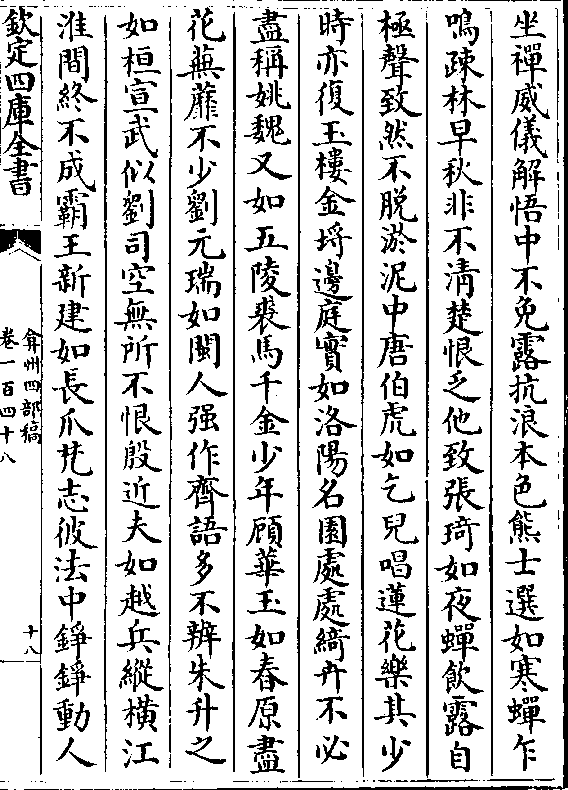 坐禪威儀解悟中不免露抗浪本色熊士選如寒蟬乍
鳴疎林早秋非不清楚恨乏他致張琦如夜蟬飲露自
極聲致然不脱淤泥中唐伯虎如乞兒唱蓮花樂其少
時亦復玉樓金埓邊庭實如洛陽名園處處綺卉不必
盡稱姚魏又如五陵裘馬千金少年顧華玉如春原盡
花蕪蘼不少劉元瑞如閩人强作齊語多不辨朱升之
如桓宣武似劉司空無所不恨殷近夫如越兵縱横江
淮間終不成霸王新建如長爪梵志彼法中錚錚動人
欽定四庫全書
弇州四部稿
卷一百四十八
十八